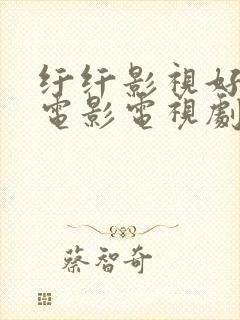 纤纤影視好
電影電視劇
蔡智奇